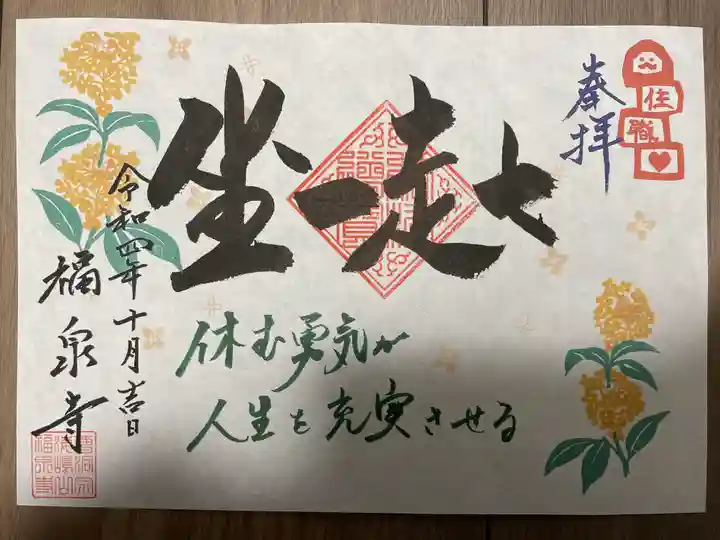 住職
奉拝
七走一坐
休む勇気が
人生を充実させる
令和四年十月吉日
福泉寺